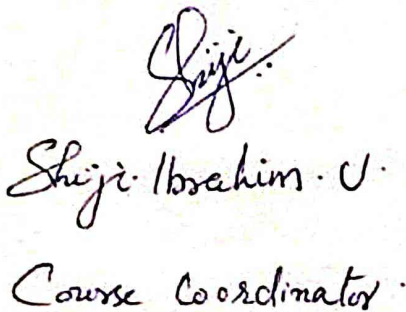 Shiji
Shiji Ibrahim. U.
Course Coordinator.